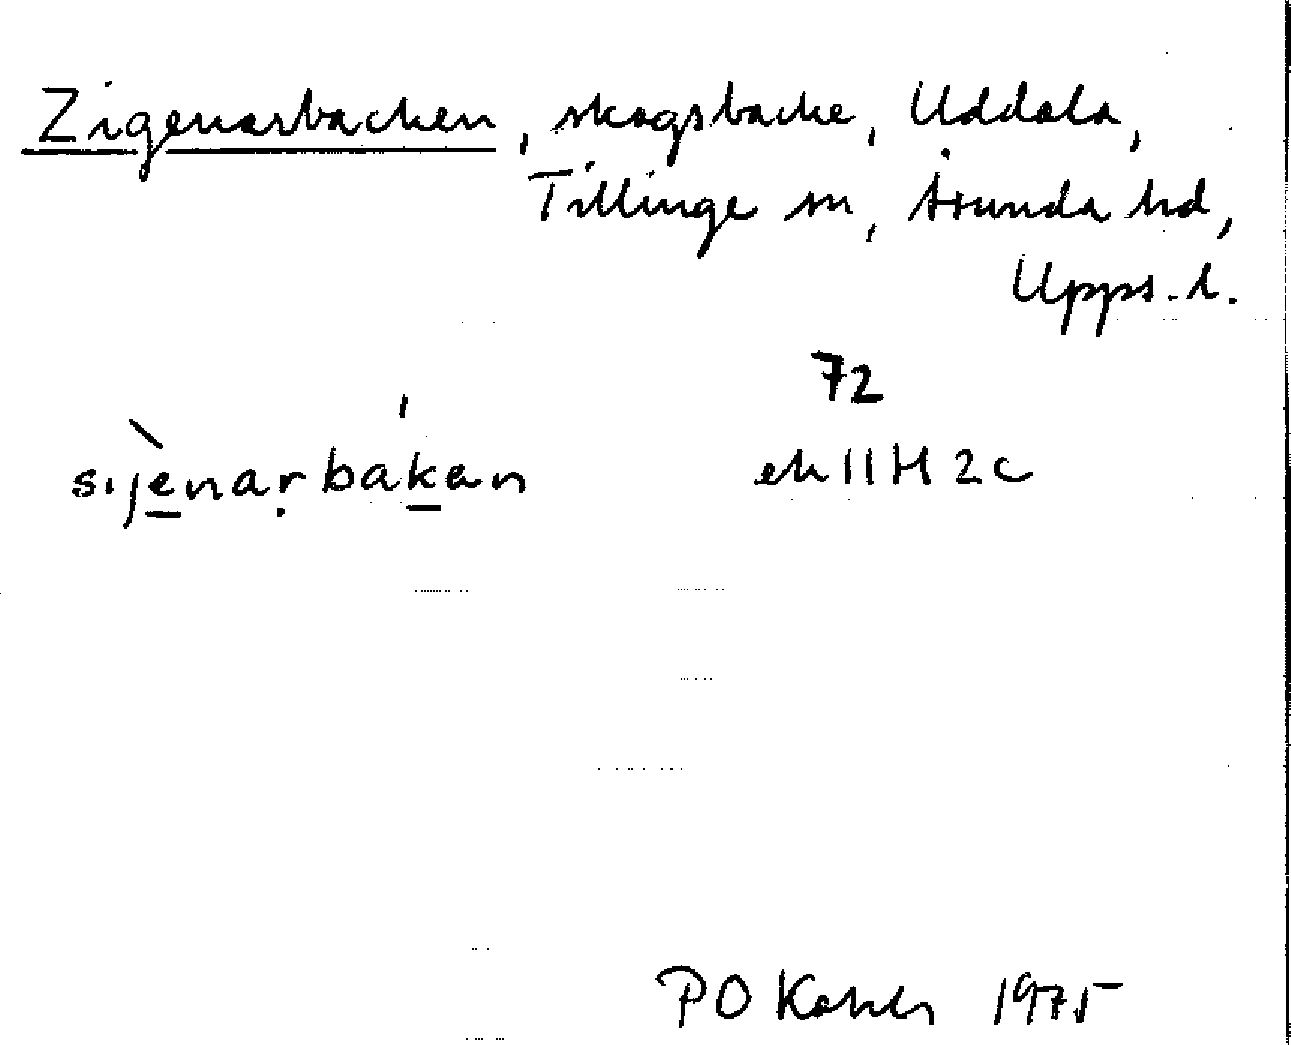 Zigenarbacken, skogsbacke, Uddala,
Tillinge sn, Åsunda hd,
Upps. l.
72
sijenarbaken ek 11 H 2c
PO 1975